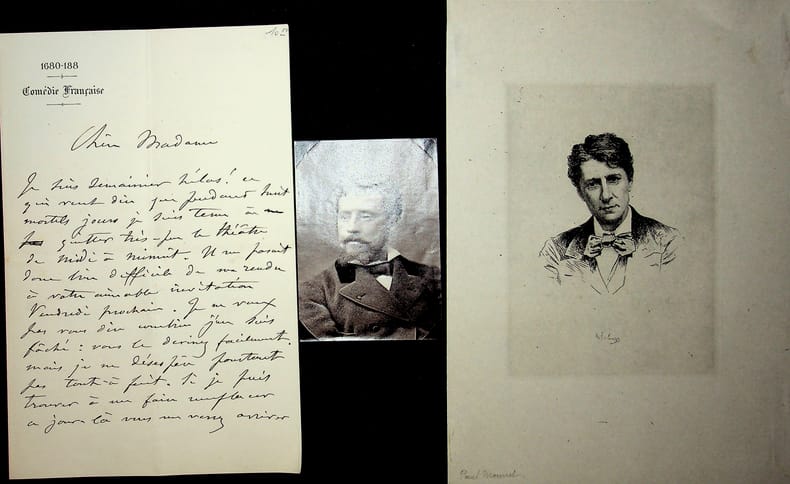 1680-188
Comédie Française
Chère Madame
Je suis semainier hélas! ce
qui veut dire que pendant huit
mortels jours je suis tenu à ne
quitter très-peu le théâtre
de midi à minuit. Il me
donc bien difficile de me rendre
à votre aimable invitation
Vendredi prochain. Je ne veux
pas vous dire combien j'en suis
fâché: vous le devinez facilement.
mais je ne désespère pourtant
pas tout-à-fait. Si je puis
trouver à me faire remplacer
ce jour là vous me verrez arriver
Paul Mounet